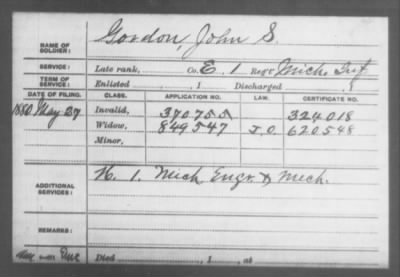 NAME OF SOLDIER: Gordon, John S.
SERVICE: Late rank, Co. E. 1 Reg't Mich. Inf
TERM OF SERVICE: Enlisted , 1 Discharged , 1
DATE OF FILING. CLASS. APPLICATION NO. LAW. CERTIFICATE NO.
1880, May 27 Invalid, 370755 324018
Widow, 849547 J.O. 620548
Minor,
ADDITIONAL SERVICES: K. 1. Mich. Engr. & Mech.
REMARKS:
Died , 1 , at